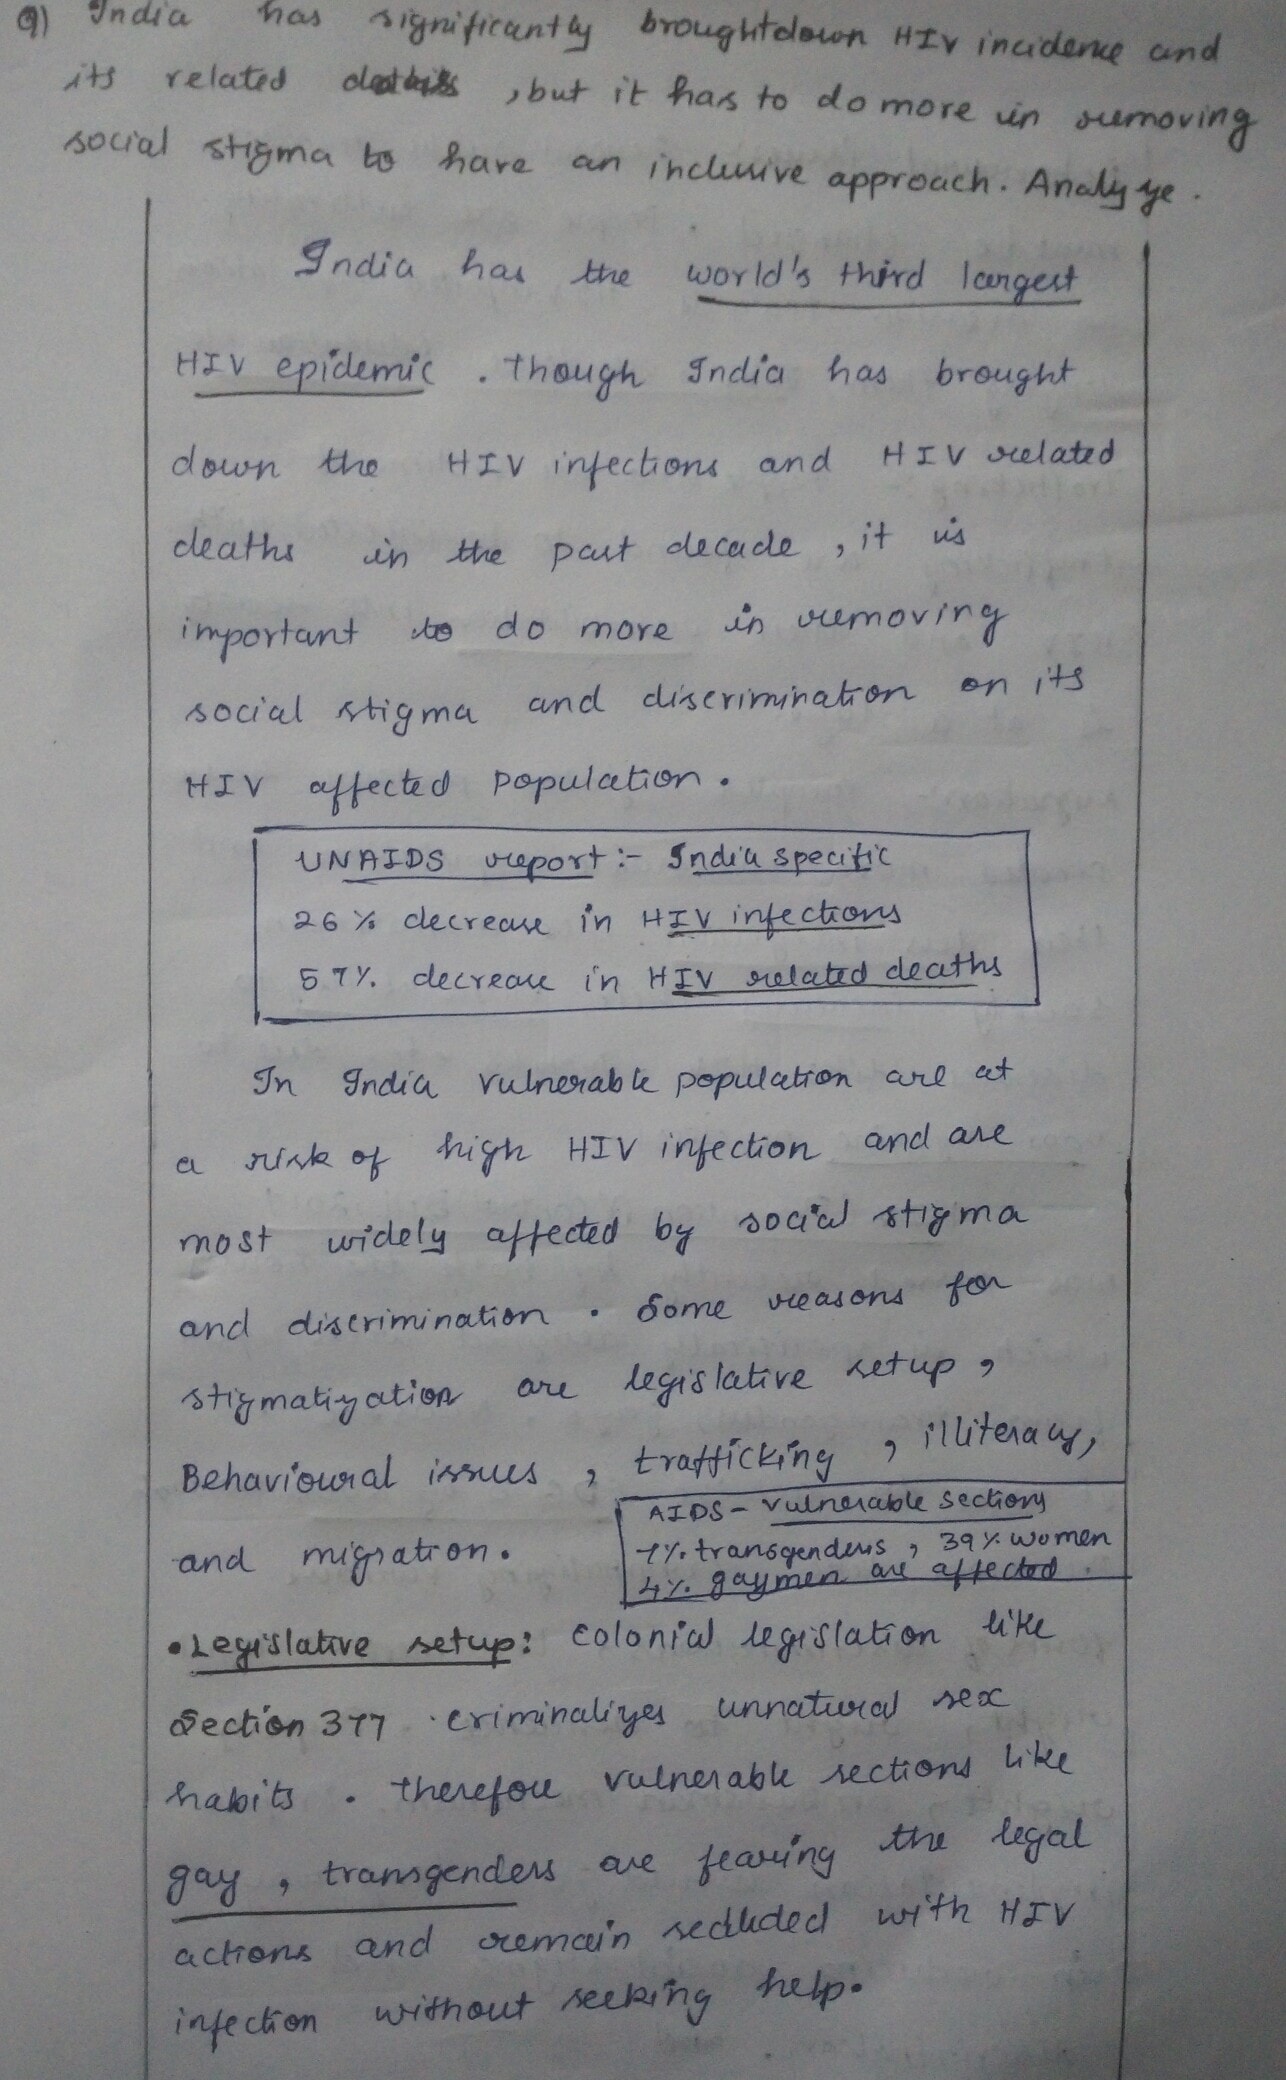 Q) India has significantly broughtdown HIV incidence and
its related deaths , but it has to do more in removing
social stigma to have an inclusive approach. Analyze.
India has the world's third largest
HIV epidemic . Though India has brought
down the HIV infections and HIV related
deaths in the past decade , it is
important to do more in removing
social stigma and discrimination on its
HIV affected population .
UNAIDS report :- India specific
26% decrease in HIV infections
57% decrease in HIV related deaths
In India vulnerable population are at
a risk of high HIV infection and are
most widely affected by social stigma
and discrimination . Some reasons for
stigmatization are legislative setup ,
Behavioural issues , trafficking , illiteracy,
and migration.
AIDS - vulnerable sections
7% transgenders , 39% women
4% gaymen are affected .
• Legislative setup : Colonial legislation like
Section 377 criminalizes unnatural sex
habits . Therefore vulnerable sections like
gay , transgenders are fearing the legal
actions and remain secluded with HIV
infection without seeking help.